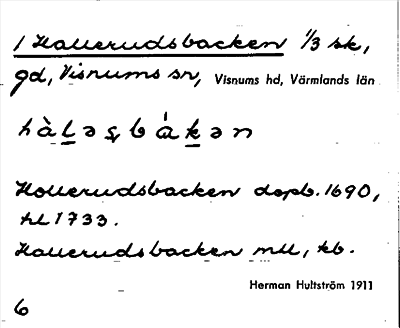 1 Hallerudsbacken 1/3 sk,
gd, Visnums sn, Visnums hd, Värmlands län
hàḷəṣbákən
Hollerudsbacken dopb. 1690,
hL 1733.
Hallerudsbacken mLL, kb.
Herman Hultström 1911
6